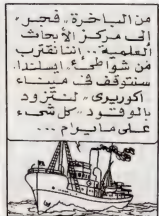 من الباخرة، فجر،
إلى مركز الأبحاث
العلمية... إننا نقترب
من شواطئ، ايسلندا.
سنتوقف في ميناء
اكوريري، لنتزود
بالوقود.. كل شيء
على ما يرام...